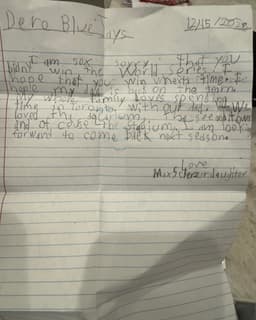 Dero Blue Jays
12/15/202
I am sox sorry that you
Didnt win the World Series I
hope that you win next time. I
hope my dad is but on the team.
My whole family loves spending
time in Toronto with out dad. We
loved the aquarium, the
and of couse the stadium. I am look
forward to come back next season.
Love
Max Scherzer daughter